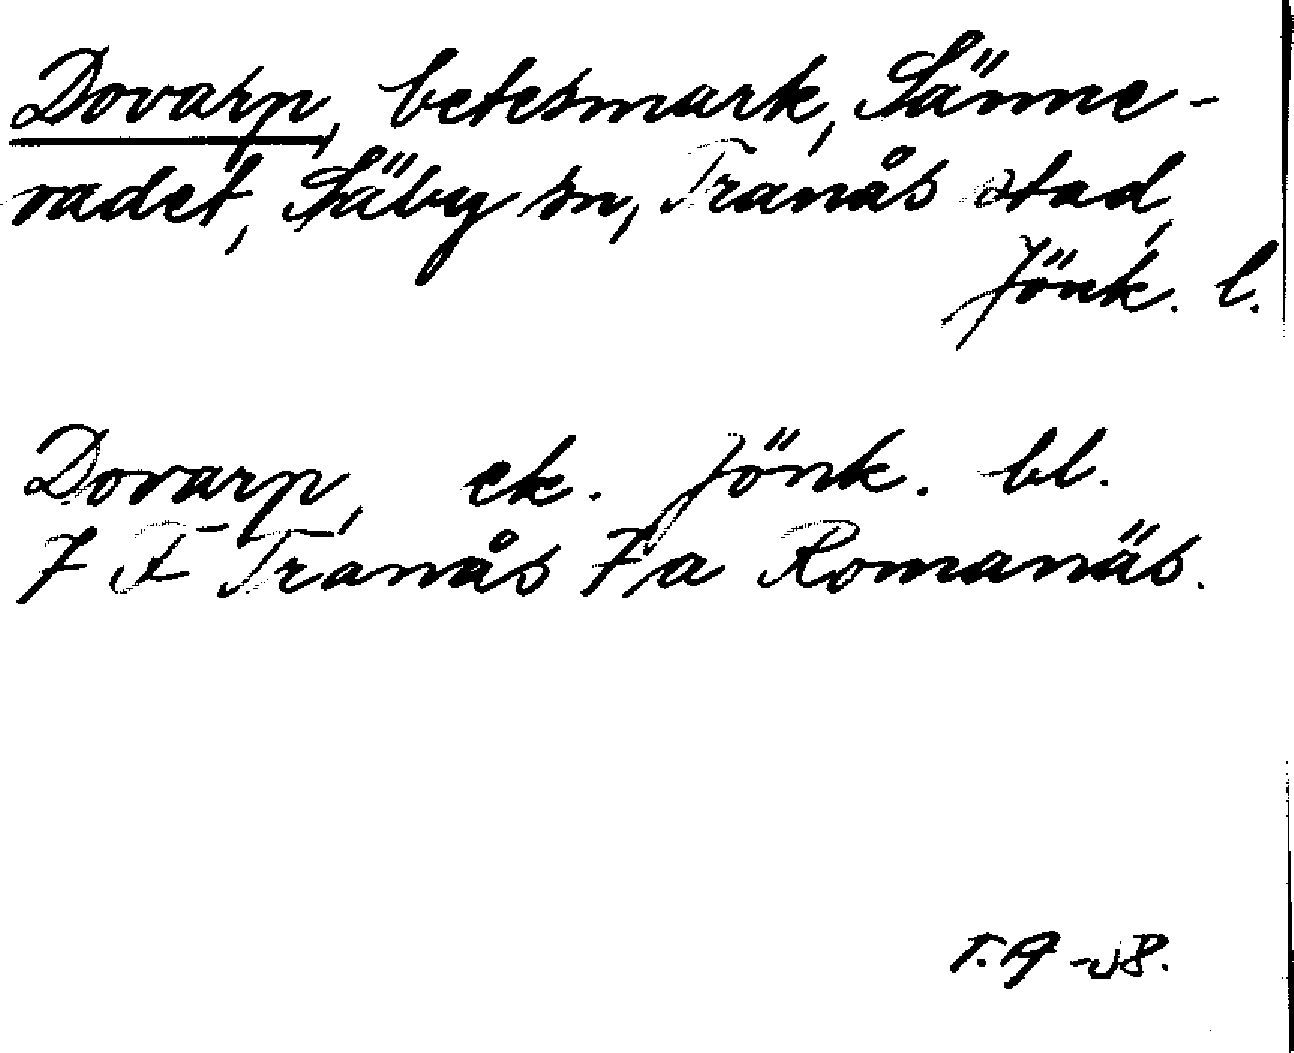 Dovarp, betesmark, Sänne-
vadet, Säby sn, Tranås stad,
Jönk. l.
Dovarp, ek. Jönk. bl.
7 F Tranås 7 a Romanäs.